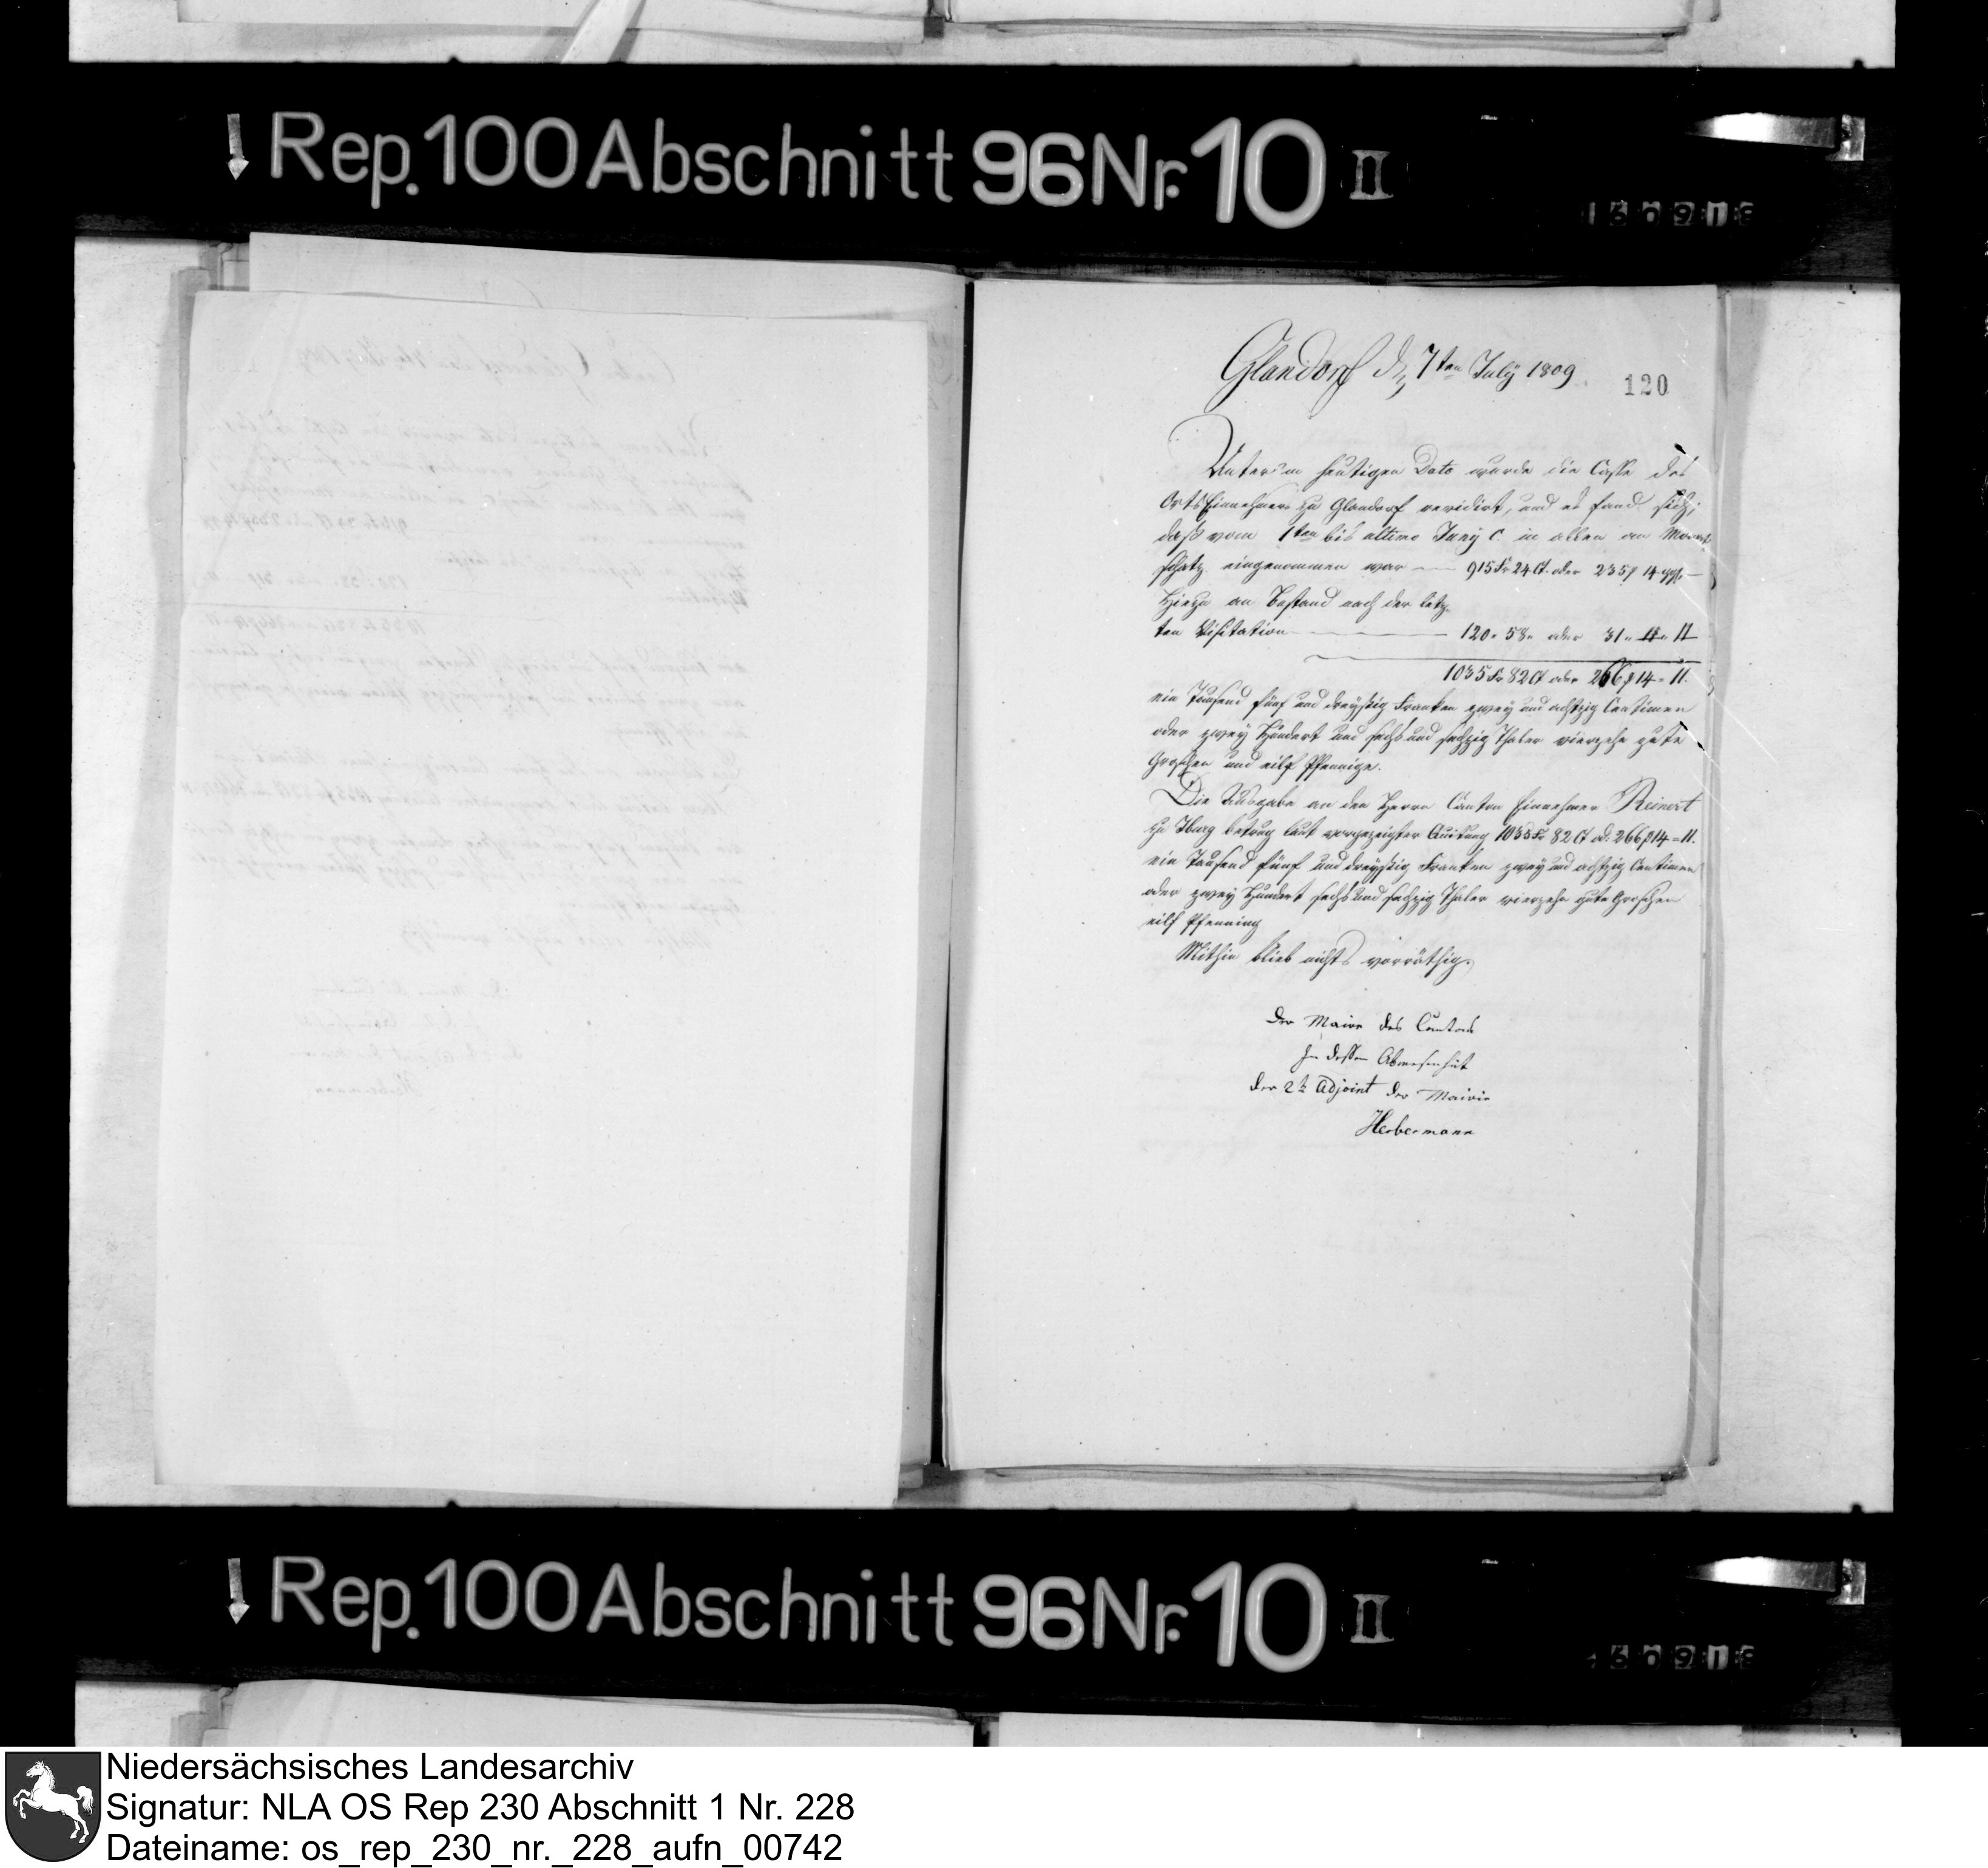 Rep. 100 Abschnitt 96 Nr. 10 II
Glandorf d. 7ten July 1809
120
Unterm heutigen Dato wurde die Casse des
Orts Einnehmers zu Glandorf revidirt, und es fand sich,
daß vom 1ten bis ultimo Juny c. in allen an Monat
schatz eingenommen war — 915 Fr 24 Ct. oder 235 14 ggr —
Hiezu an Bestand nach der letz
ten Visitation — 120 " 58 " oder 31 " " 11
1035 Fr 82 Ct oder 266 14 " 11.
ein Tausend fünf und dreyßig Franken zwey und achtzig Centimen
oder zwey Hundert und sechs und sechzig Thaler vierzehn gute
Groschen und eilf Pfennige.
Die Ausgabe an den Herrn Canton Einnehmer Reinert
zu Iburg betrug laut vorgezeigter Quitung 1035 Fr 82 Ct od. 266 14 " 11.
ein Tausend fünf und dreyßig Franken zwey und achtzig Centimen
oder zwey Hundert sechs und sechzig Thaler vierzehn gute Groschen
eilf Pfennig
Mithin blieb nichts vorräthig.
Der Maire des Cantons
In dessen Abwesenheit
der 2te Adjoint der Mairie
Herbermann
Rep. 100 Abschnitt 96 Nr. 10 II
Niedersächsisches Landesarchiv
Signatur: NLA OS Rep 230 Abschnitt 1 Nr. 228
Dateiname: os_rep_230_nr._228_aufn_00742